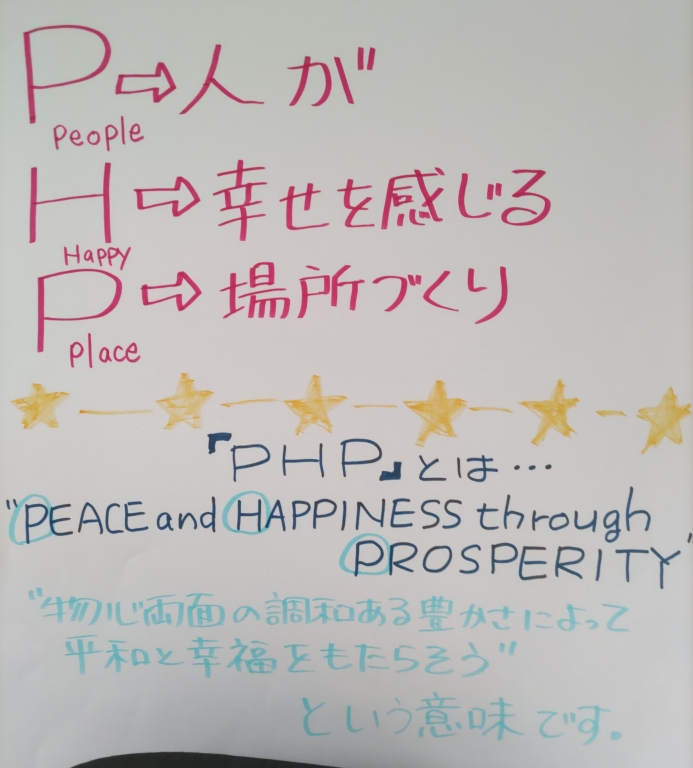 P⇨人が
People
H⇨幸せを感じる
Happy
P⇨場所づくり
place
『PHP』とは…
"PEACE and HAPPINESS through
PROSPERITY"
"物心両面の調和ある豊かさによって
平和と幸福をもたらそう"
という意味です.